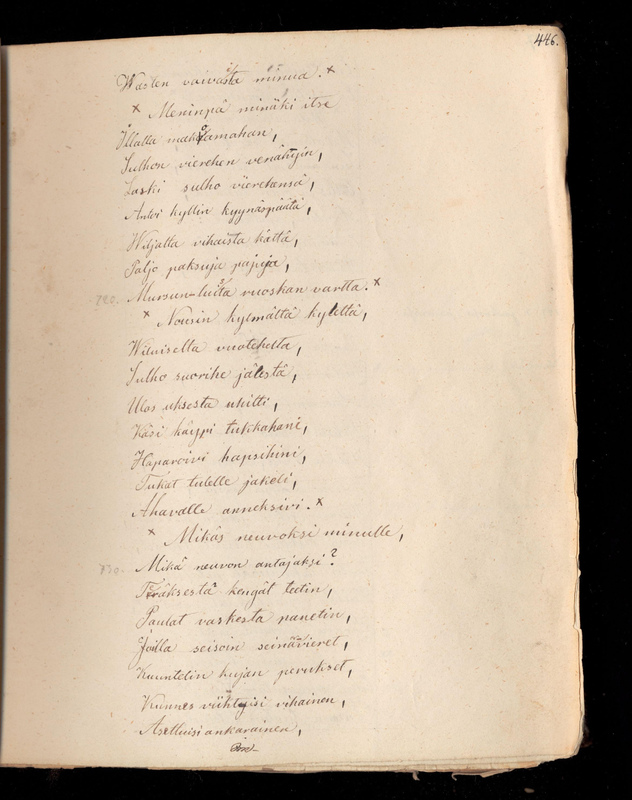 446.
Wasten vaivasta minua. ×
× Meninpä minäki itse
Illalla makaamahan,
Sulhon vierehen venähijin,
Laski sulho vierehensä,
Antoi kyllin kyynäspäätä,
Wiljalta vihaista kättä,
Paljo paksuja pajuja,
720. Mursun-luita ruoskan vartta. ×
× Nousin kylmältä kyleltä,
Wiluiselta vuotehelta,
Sulho suorihe jälestä,
Ulos uksesta uhitti,
Käsi käypi tukkahani,
Haparoivi hapsihini,
Tukat tulelle jakeli,
Ahavalle anneksivi. ×
× Mikäs neuvoksi minulle,
730. Mikä neuvon antajaksi?
Teräksestä kengät teetin,
Paulat vaskesta panetin,
Joilla seisoin seinävieret,
Kuuntelin kujan perukset,
Kunnes viihtyisi vihainen,
Asettuisi ankarainen,